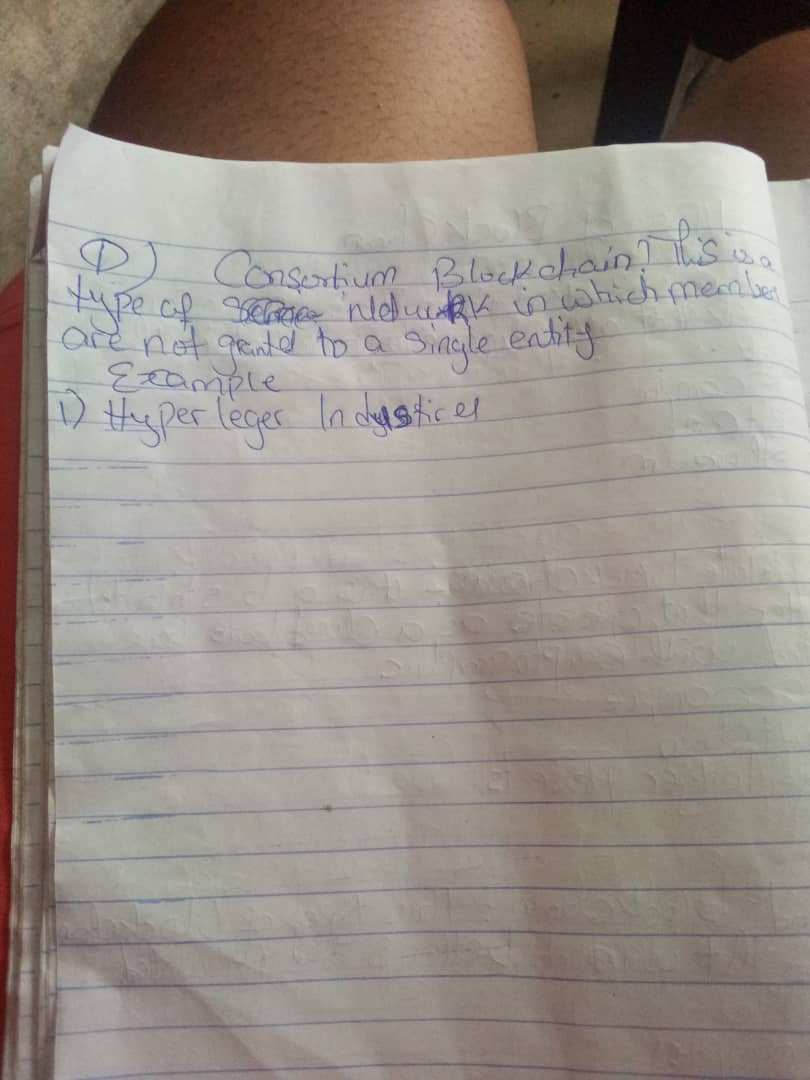 D) Consortium Blockchain! This is a
type of network in which member
are not grantd to a single entity
Example
1) Hyper leger Industries